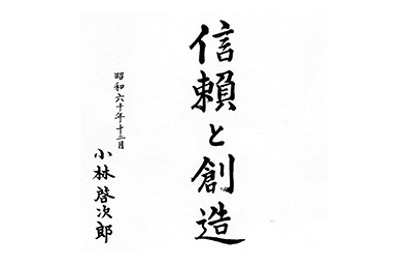 信頼と創造
昭和六十年十二月
小林啓次郎